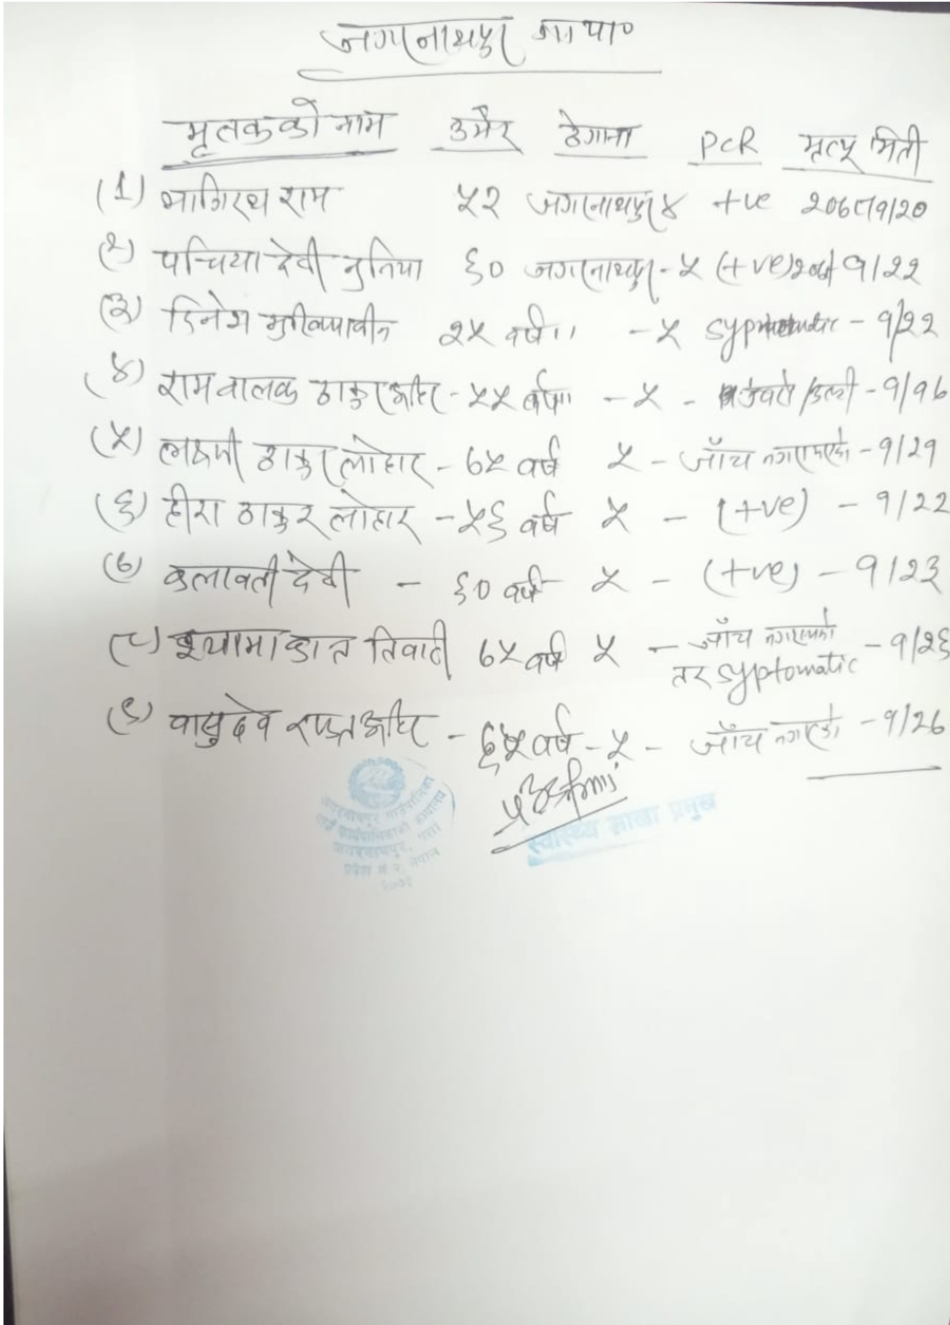 जगरनाथपुर गा पा०
मृतकको नाम उमेर ठेगाना PCR मृत्यू मिती
(1) भागिरथ राम ५२ जगरनाथपुर ४ +ve २०७८/१/२०
(२) पन्चिया देवी नुनिया ६० जगरनाथपुर - ५ (+ve) १/२२
(३) दिनेश २५ वर्ष ।। - ५ - १/२२
(४) रामवालक ठाकुर - ५५ वर्ष ।। - ५ - - १/१६
(५) लक्ष्मी ठाकुर लोहार - ७५ वर्ष ५ - जाँच नगराएको - १/२१
(६) हीरा ठाकुर लोहार - ५६ वर्ष ५ - (+ve) - १/२२
(७) कलावती देवी - ६० वर्ष ५ - (+ve) - १/२३
(८) श्यामाकान्त तिवारी ७५ वर्ष ५ - जाँच नगराएको
तर syptomatic - १/२६
(९) वासुदेव - ६५ वर्ष - ५ - जाँच नगरेको - १/२६
जगरनाथपुर गाउँपालिका
गाउँ कार्यपालिकाको कार्यालय
जगरनाथपुर, पर्सा
प्रदेश नं २, नेपाल
स्वास्थ्य शाखा प्रमुख